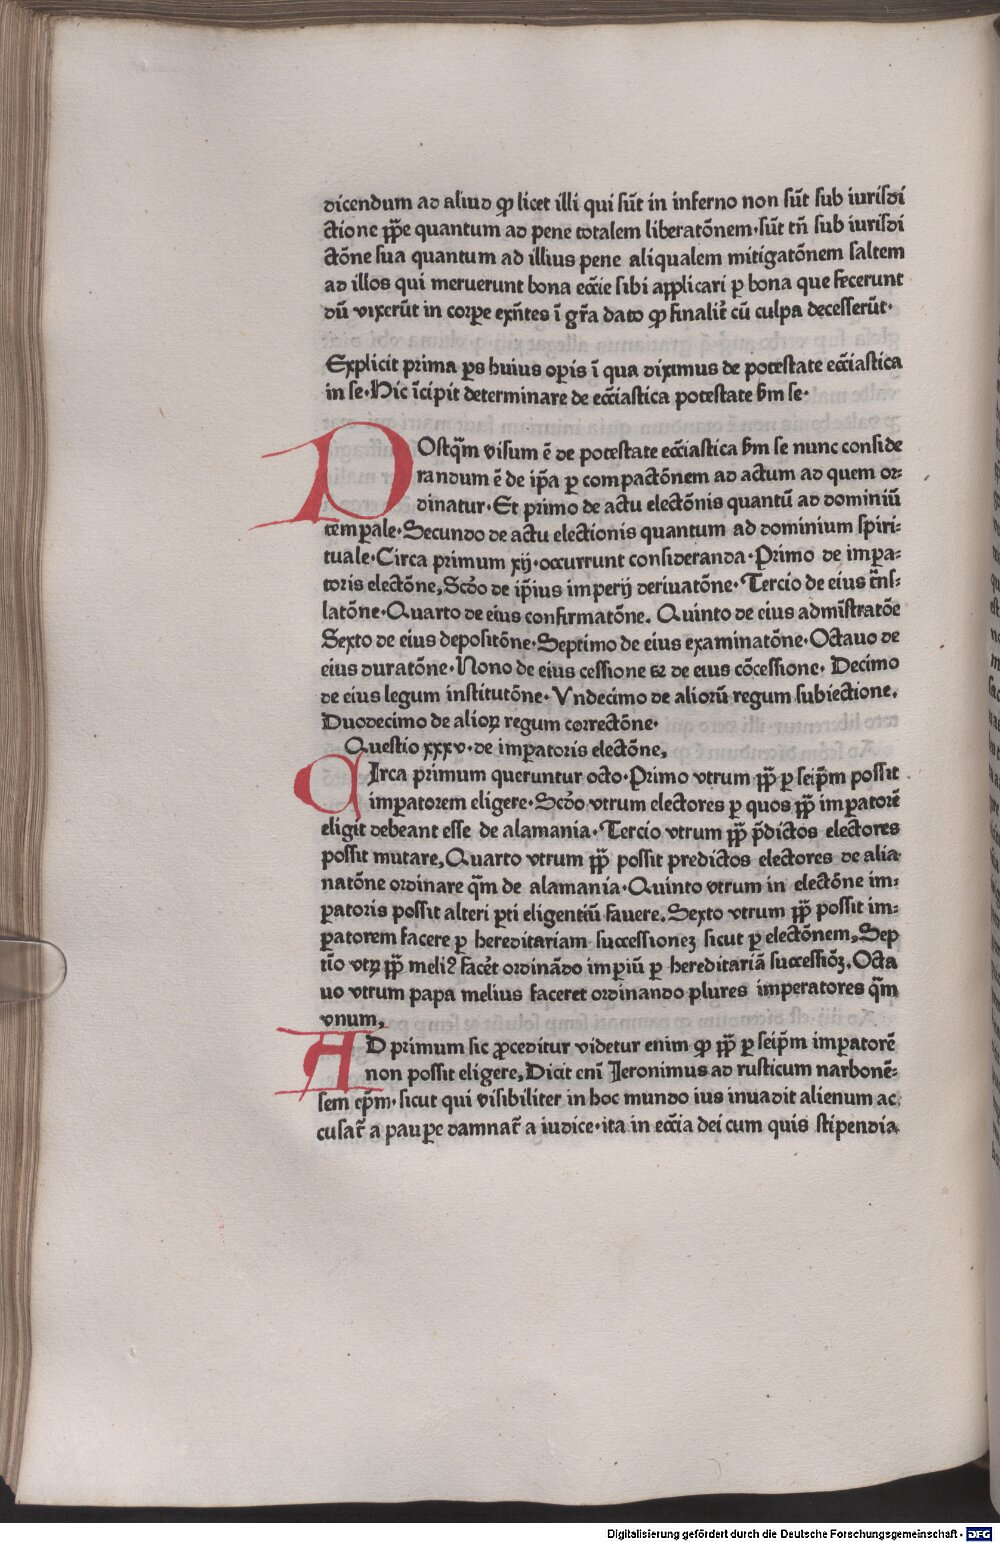 dicendum ad aliud ꝙ licet illi qui sūt in inferno non sūt sub iurisdi
ctione ꝓp̄e quantum ad pene totalem liberatōnem·sūt tn̄ sub iurisdi
ctōne sua quantum ad illius pene aliqualem mitigatōnem saltem
ad illos qui meruerunt bona ecc̄ie sibi applicari ꝑ bona que fecerunt
dū vixerūt in corꝑe exn̄tes ī gr̄a dato ꝙ finalit̄ cū culpa decesserūt·
Explicit prima ꝑs huius oꝑis ī qua diximus de potestate ecc̄iastica
in se·Hic īcipit determinare de ecc̄iastica potestate ẜm se·
POstq̄m visum ē de potestate ecc̄iastica ẜm se nunc conside
randum ē de ip̄a ꝑ compactōnem ad actum ad quem or⸗
dinatur·Et primo de actu electōnis quantū ad dominiū
temꝑale·Secundo de actu electionis quantum ad dominium spiri⸗
tuale·Circa primum xij·occurrunt consideranda·Primo de imꝑa⸗
toris electōne,Scd̄o de ip̄ius imperij deriuatōne·Tercio de eius tn̄s⸗
latōne·Quarto de eius confirmatōne. Quinto de eius admīstratōe
Sexto de eius depositōne·Septimo de eius examinatōne·Octauo de
eius duratōne·Nono de eius cessione ⁊ de eius cōcessione· Decimo
de eius legum institutōne·Vndecimo de aliorū regum subiectione.
Duodecimo de alioꝝ regum correctōne·
Questio xxxv·de imꝑatoris electōne,
CIrca primum queruntur octo·Primo vtrum pp̄ ꝑ seip̄m possit
imꝑatorem eligere·Scd̄o vtrum electores ꝑ quos pp̄ imꝑatorē
eligit debeant esse de alamania·Tercio vtrum pp̄ p̄dictos electores
possit mutare,Quarto vtrum pp̄ possit predictos electores de alia
natōne ordinare q̄m de alamania·Quinto vtrum in electōne im⸗
ꝑatoris possit alteri ꝑti eligentiū fauere.Sexto vtrum pp̄ possit im⸗
ꝑatorem facere ꝑ hereditariam successionez sicut ꝑ electōnem,Sep
tīo vtꝝ pp̄ meliꝰ facet̄ ordinādo imꝑiū ꝑ hereditariā successiōꝫ.Octa
uo vtrum papa melius faceret ordinando plures imperatores q̄m
vnum,
AD primum sic ꝓceditur videtur enim ꝙ pp̄ ꝑ seip̄m imꝑatorē
non possit eligere,Dicit enī Ieronimus ad rusticum narbonē⸗
sem ep̄m·sicut qui visibiliter in hoc mundo ius inuadit alienum ac
cusat̄ a pauꝑe damnat̄ a iudice·ita in ecc̄ia dei cum quis stipendia
Digitalisierung gefördert durch die Deutsche Forschungsgemeinschaft - DFG